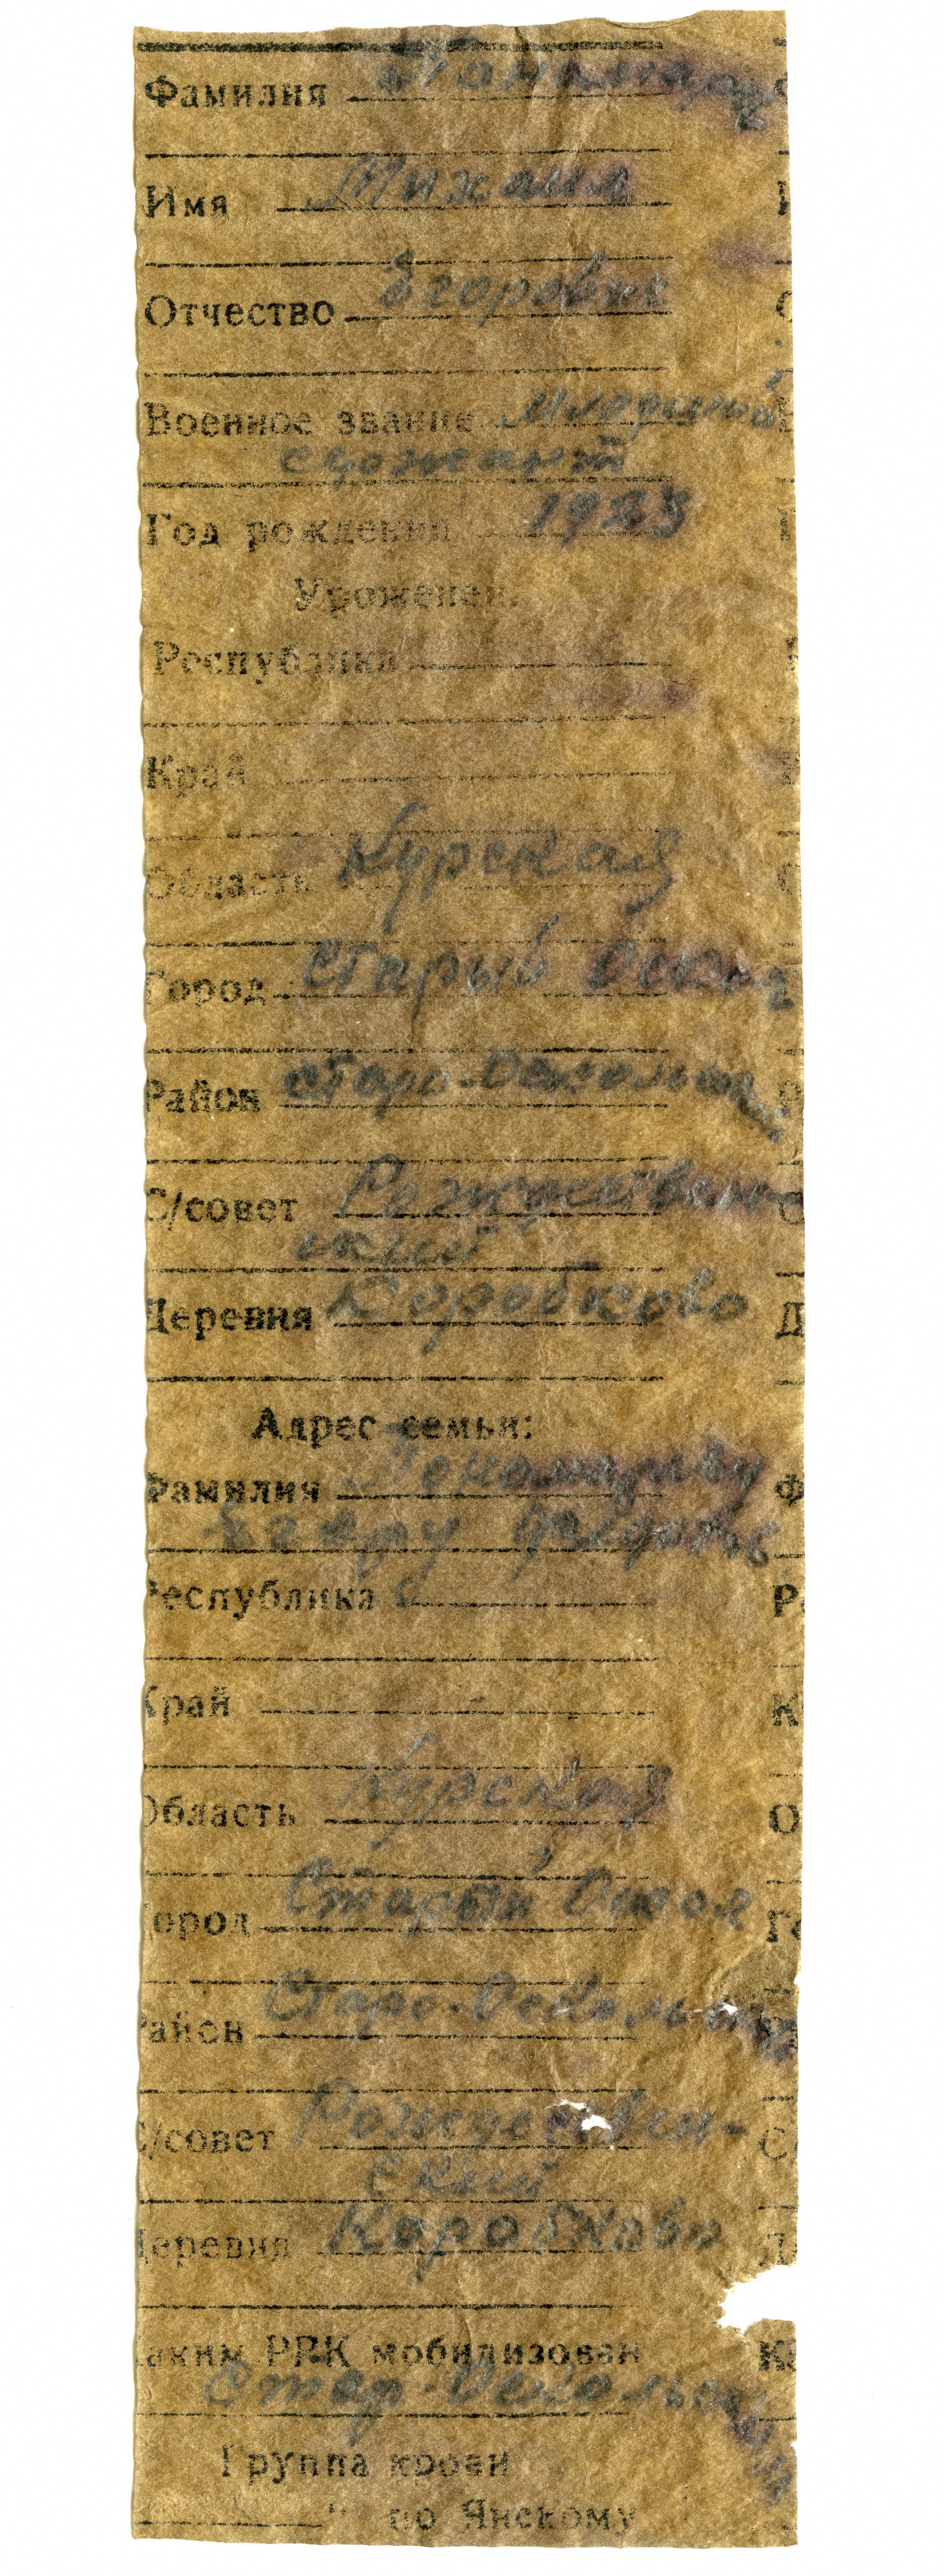 Фамилия Пономарев
Имя Михаил
Отчество Егорович
Военное звание Младший
сержант
Год рождения 1923
Уроженец:
Республика
Край
Область Курская
Город Старый Оскол
Район Старо-Оскольский
С/совет Рождествен
ский
Деревня Коробково
Адрес семьи:
Фамилия Пономареву
Егору
Республика
Край
Область Курская
Город Старый Оскол
Район Старо-Оскольский
С/совет Рождествен-
ский
Деревня Коробково
Каким РВК мобилизован
Стар-Оскольским
Группа крови
" по Янскому